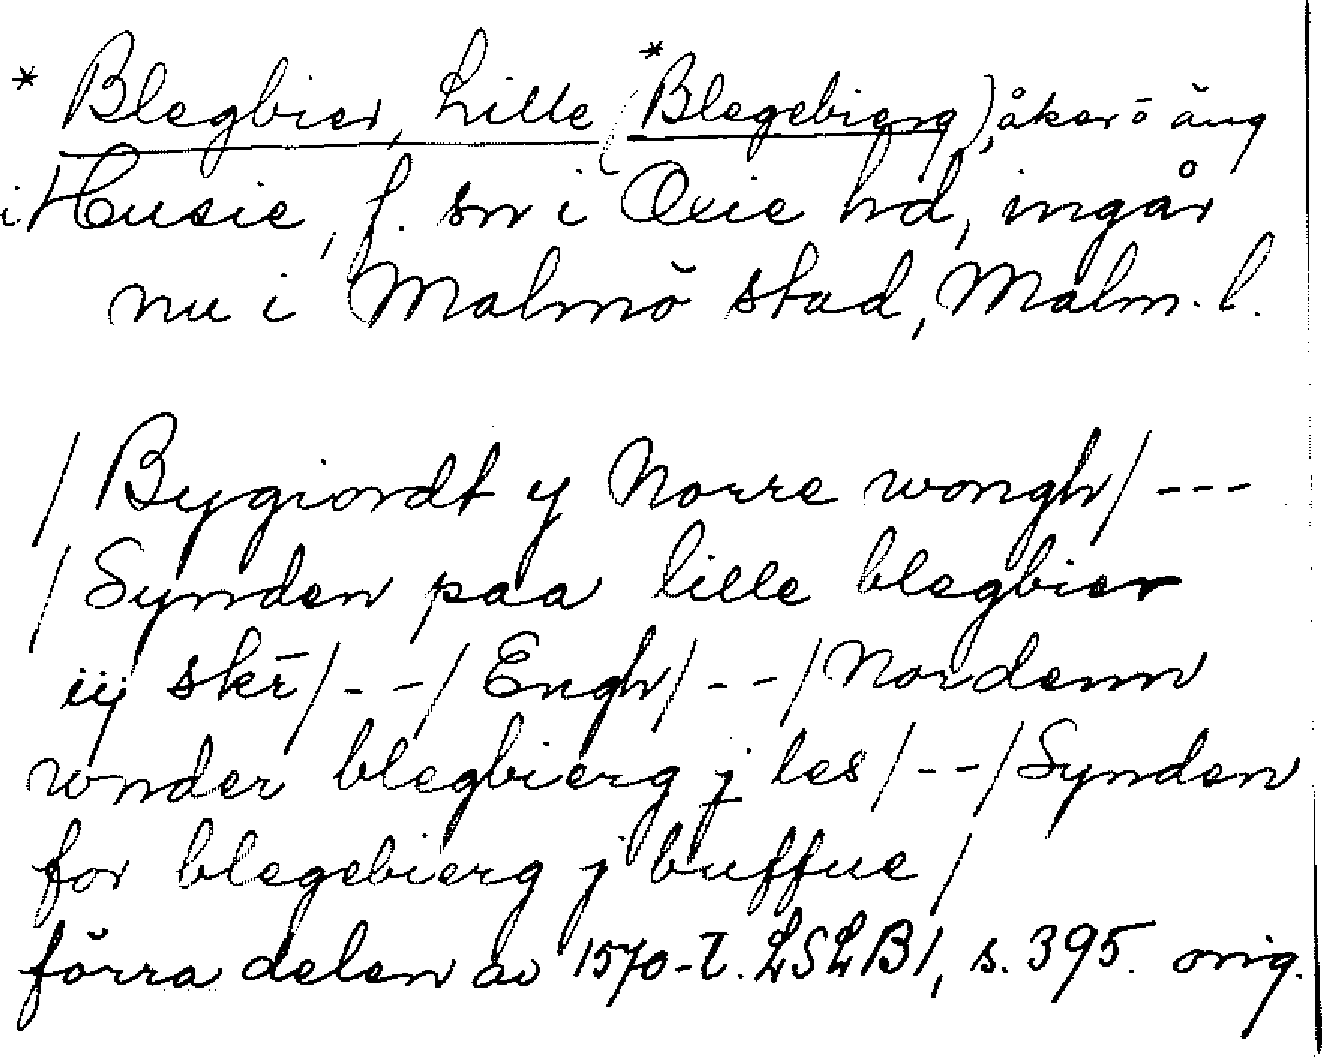 * Blegbier, Lille (*Blegebierg), åker o äng
i Husie, f. sn i Oxie hd, ingår
nu i Malmö stad, Malm. l.
/Bygiordt y Norre wongh/ ---
/Synden paa lille blegbier
iij skr̄/ - - / Engh/ - - /Nordenn
wnder blegbierg j les/ - - /Synden
for blegebierg j buffue/
förra delen av 1570-t. LSLB1, s. 395. orig.